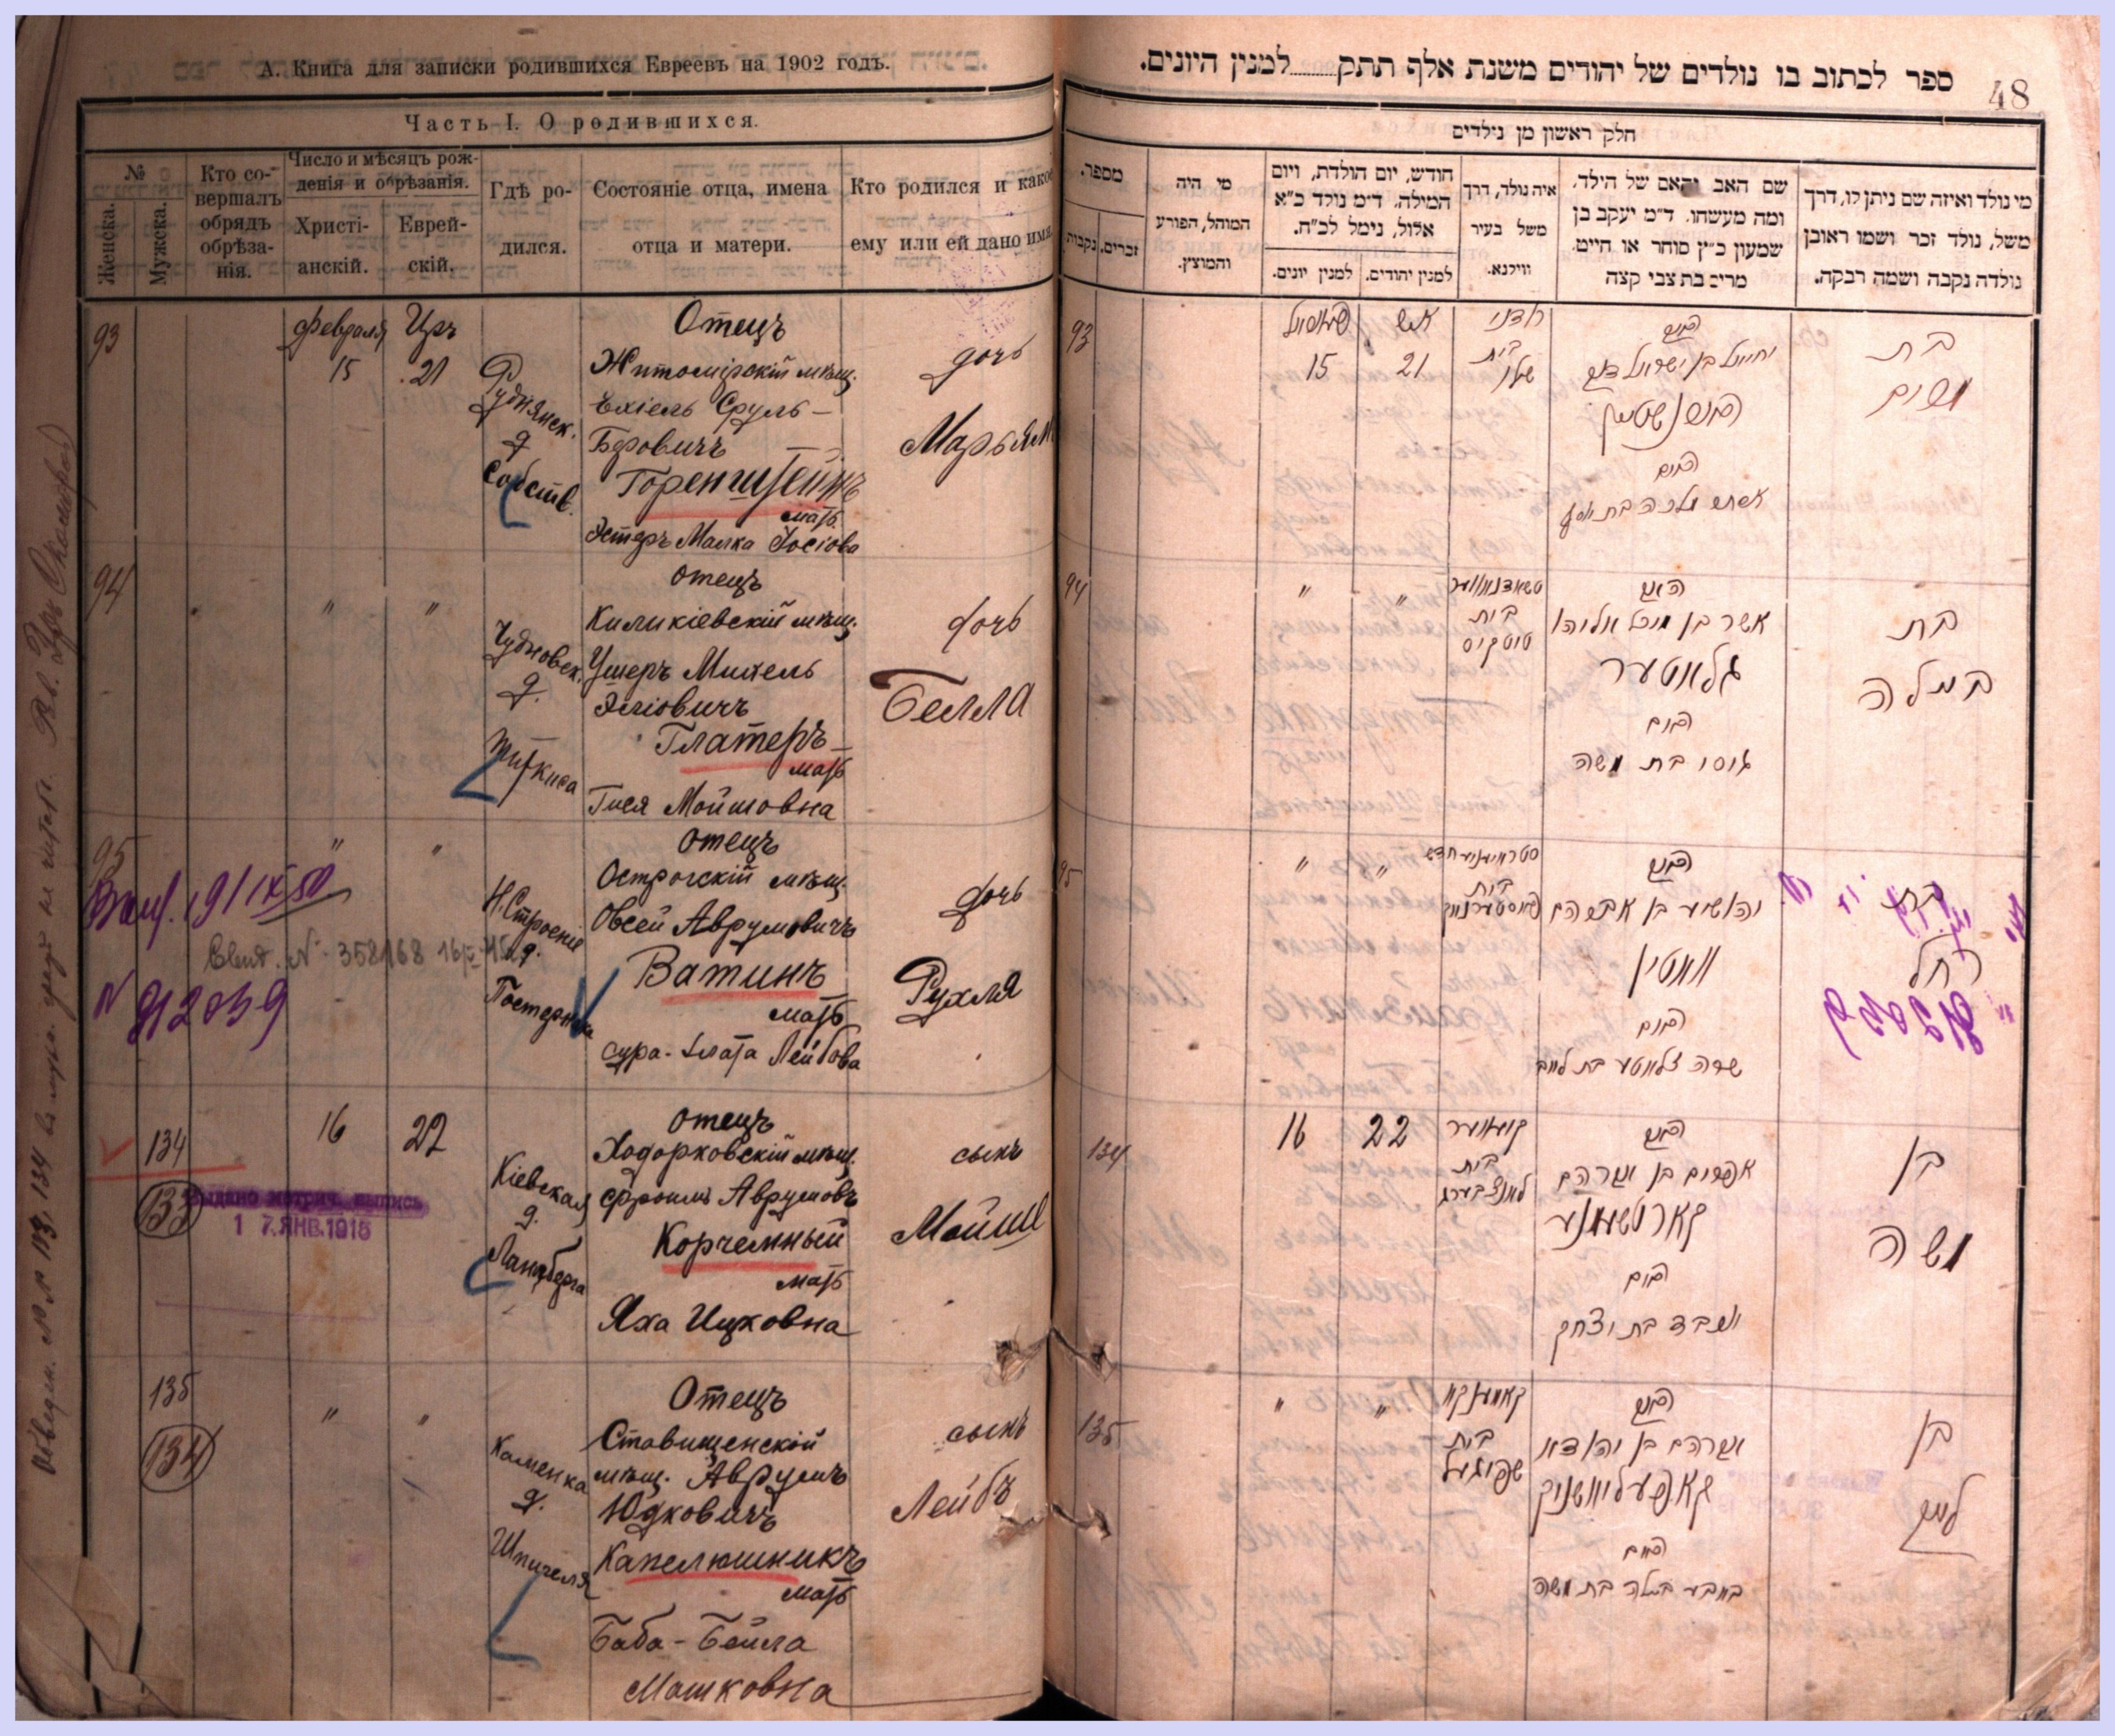 А. Книга для записки родившихся Евреевъ на 1902 годъ.
Часть I. О родившихся.
№
Женска.
Мужска.
Кто со-
вершалъ
обрядъ
обрѣза-
нія.
Число и мѣсяцъ рож-
денія и обрѣзанія.
Христі-
анскій.
Еврей-
скій.
Гдѣ ро-
дился.
Состояніе отца, имена
отца и матери.
Кто родился и какое
ему или ей дано имя.
93
Февраля
15
21
Руднянск.
д
Собств.
Отецъ
Житомірскій мѣщ.
Ехіель Сруль-
Беровичъ
Горенштейнъ
мать
Эстеръ Малка Іосіова
дочь
Марьям
94
" "
Чудновск.
д.
Отецъ
Киликіевскій мѣщ.
Ушеръ Михель
Эліовичъ
Глатеръ
мать
Гися Мойшовна
дочь
Белла
95
" "
Н. Строеніе
д.
Отецъ
Острогскій мѣщ.
Овсей Аврумовичъ
Ватинъ
мать
Сура-Злата Лейбова
дочь
Рухля
19/IX 50
Свид. № 358168
134
133
16
22
Кіевская
д.
Ланцберга
Отецъ
Ходорковскій мѣщ.
Фроимъ Аврумовъ
Корчемный
мать
Яха Ицковна
сынъ
Мойше
Выдано метрич. выпись
1 7. ЯНВ. 1916
135
134
" "
Каменка
д.
Шпигеля
Отецъ
Ставищенскій
мѣщ. Аврумъ
Юдковичъ
Капелюшникъ
мать
Баба-Бейла
Машковна
сынъ
Лейбъ
ספר לכתוב בו נולדים של יהודים משנת אלף תתק........למנין היונים.
48
חלק ראשון מן נולדים
מספר.
נקבות
זכרים.
מי היה
המוהל, הפורע
והמוצץ.
חודש, יום הולדת, ויום
המילה. ד"מ נולד כ"א
אלול, נימל לכ"ח.
למנין יונים.
למנין יהודים.
איה נולד, דרך
משל בעיר
ווילנא.
שם האב והאם של הילד,
ומה מעשהו. ד"מ יעקב בן
שמעון כ"ץ סוחר או חייט.
מרים בת צבי קצה
מי נולד ואיזה שם ניתן לו, דרך
משל, נולד זכר ושמו ראובן
נולדה נקבה ושמה רבקה.
93
15
21
בית
האב
הארענשטיין
האם
אסתר מלכה בת יוסף
בת
מרים
94
" "
בית
האב
אשר בן מיכל אליהו
גלאטער
האם
גיסי בת משה
בת
ביילה
95
" "
בית
האב
יהושיע בן אברהם
וואטין
האם
שרה זלאטע בת לייב
בת
רחל
134
16
22
בית
לאנצבערג
האב
אפרים בן אברהם
קארטשעמנער
האם
יוכבד בת יצחק
בן
משה
135
" "
בית
שפיגעל
האב
אברהם בן יהודא
קאפעליושניק
האם
באבע ביילה בת משה
בן
לייב